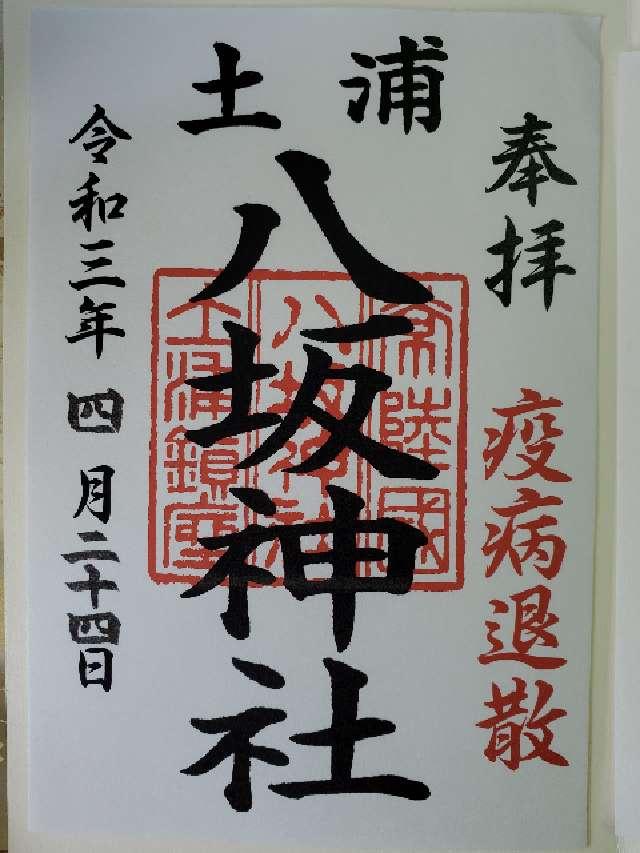 奉拝
疫病退散
土浦
八坂神社
常陸國
八坂神社
土浦鎮座
令和三年四月二十四日